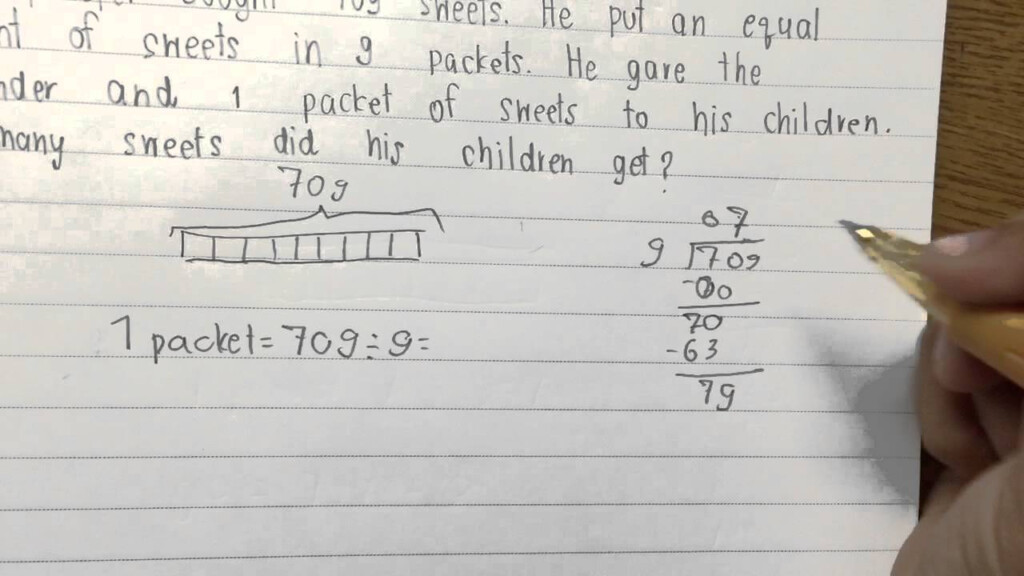 bought 709 sweets. He put an equal
of sweets in 9 packets. He gave the
and 1 packet of sweets to his children.
many sweets did his children get?
709
07
9 709
-00
70
-63
79
1 packet= 709÷9=